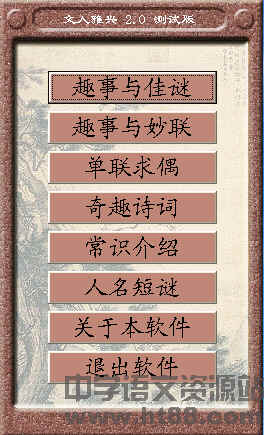 文人雅兴 2.0 测试版
趣事与佳谜
趣事与妙联
单联求偶
奇趣诗词
常识介绍
人名短谜
关于本软件
退出软件
中学语文资源站
www.ht88.com